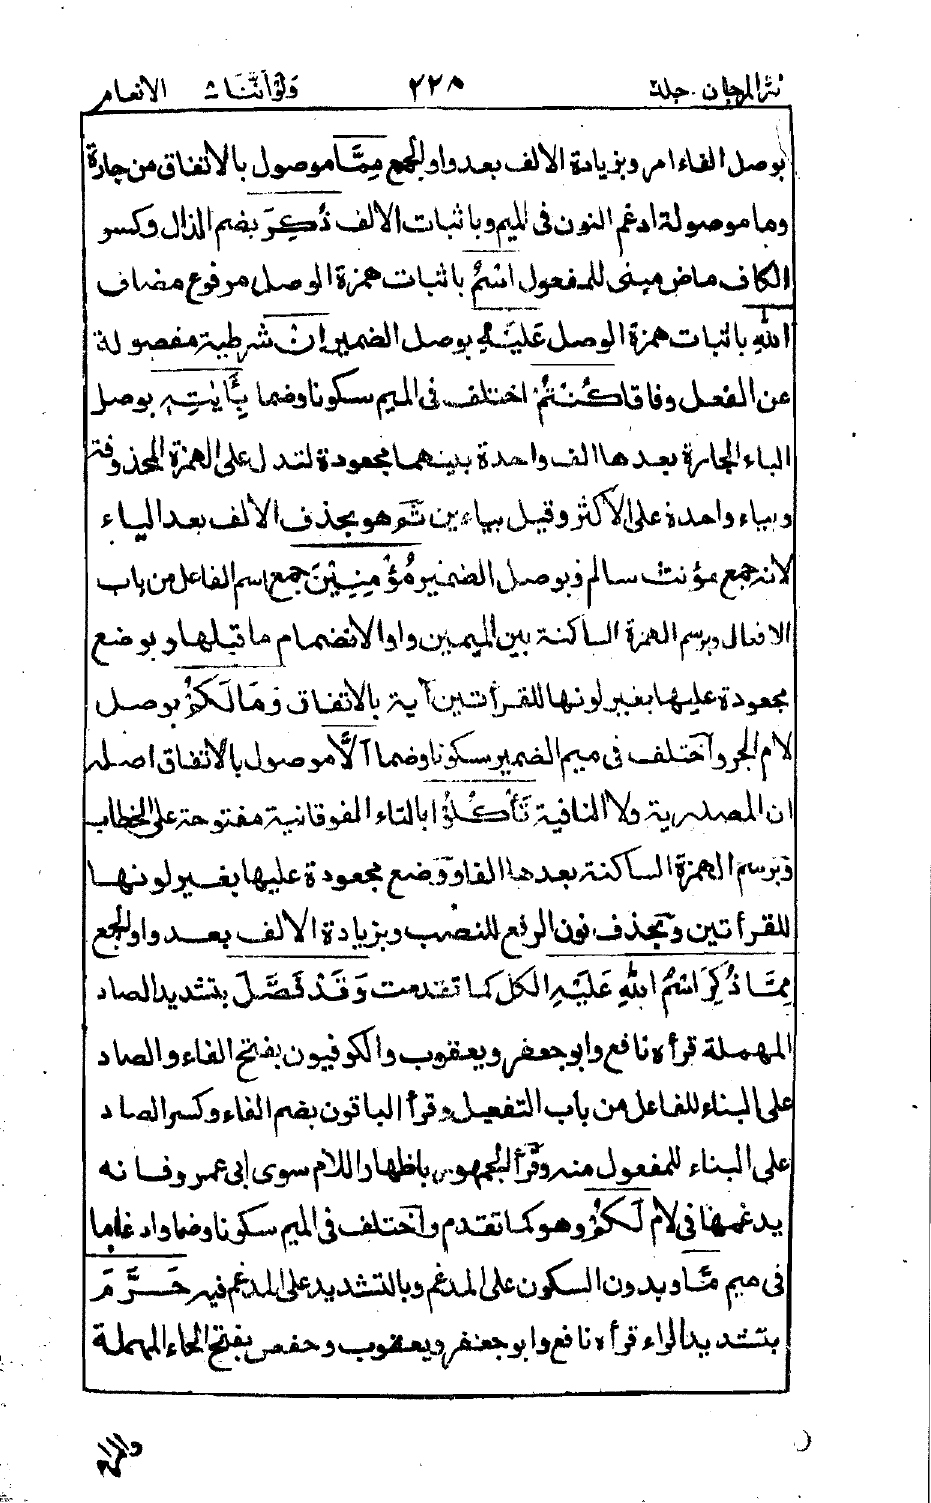 نثر المرجان جلد ٢٢٥ ولواننا ٨ الانعام
بوصل الفاء امر وبزيادة الالف بعد واو الجمع مِمَّا موصول بالاتفاق من جارة
وما موصولة ادغم النون فى الميم وباثبات الالف ذُكِرَ بضم الذال وكسر
الكاف ماض مبنى للمفعول اسْمُ باثبات همزة الوصل مرفوع مضاف
اللهِ باثبات همزة الوصل عَلَيْهِ بوصل الضمير اِنْ شرطية مفصولة
عن الفعل وفاقا كُنْتُمْ اختلف فى الميم سكونا وضما بِاٰيٰتِهٖ بوصل
الباء الجارة بعدها الف واحدة بينهما مجعودة لتدل على الهمزة المحذوفة
وبياء واحدة على الأكثر وقيل بياءين ثم هو بحذف الألف بعد الياء
لانه جمع مؤنث سالم وبوصل الضمير مُؤْمِنِيْنَ جمع اسم الفاعل من باب
الافعال وبرسم الهمزة الساكنة بين الميمين واوا لانضمام ما قبلها وبوضع
مجعودة عليها بغير لونها للقرأتين آية بالاتفاق وَمَا لَكُمْ بوصل
لام الجر واختلف فى ميم الضمير سكونا وضما اَلَّا موصول بالاتفاق اصله
ان المصدرية ولا النافية تَأْكُلُوْا بالتاء الفوقانية مفتوحة على الخطاب
وبرسم الهمزة الساكنة بعدها الفا ووضع مجعودة عليها بغير لونها
للقرأتين وبحذف نون الرفع للنصب وبزيادة الالف بعد واو الجمع
مِمَّا ذُكِرَ اسْمُ اللهِ عَلَيْهِ الكل كما تقدمت وَقَدْ فَصَّلَ بتشديد الصاد
المهملة قرأه نافع وابو جعفر ويعقوب والكوفيون بفتح الفاء والصاد
على البناء للفاعل من باب التفعيل وقرأ الباقون بضم الفاء وكسر الصاد
على البناء للمفعول منه وقرأ الجمهور باظهار اللام سوى ابى عمرو فانه
يدغمها فى لام لَكُمْ وهو كما تقدم واختلف فى الميم سكونا وضما وادغامها
فى ميم مَّا وبدون السكون على المدغم وبالتشديد على المدغم فيه حَرَّمَ
بتشديد الراء قرأه نافع وابو جعفر ويعقوب وحفص بفتح الحاء المهملة
والراء